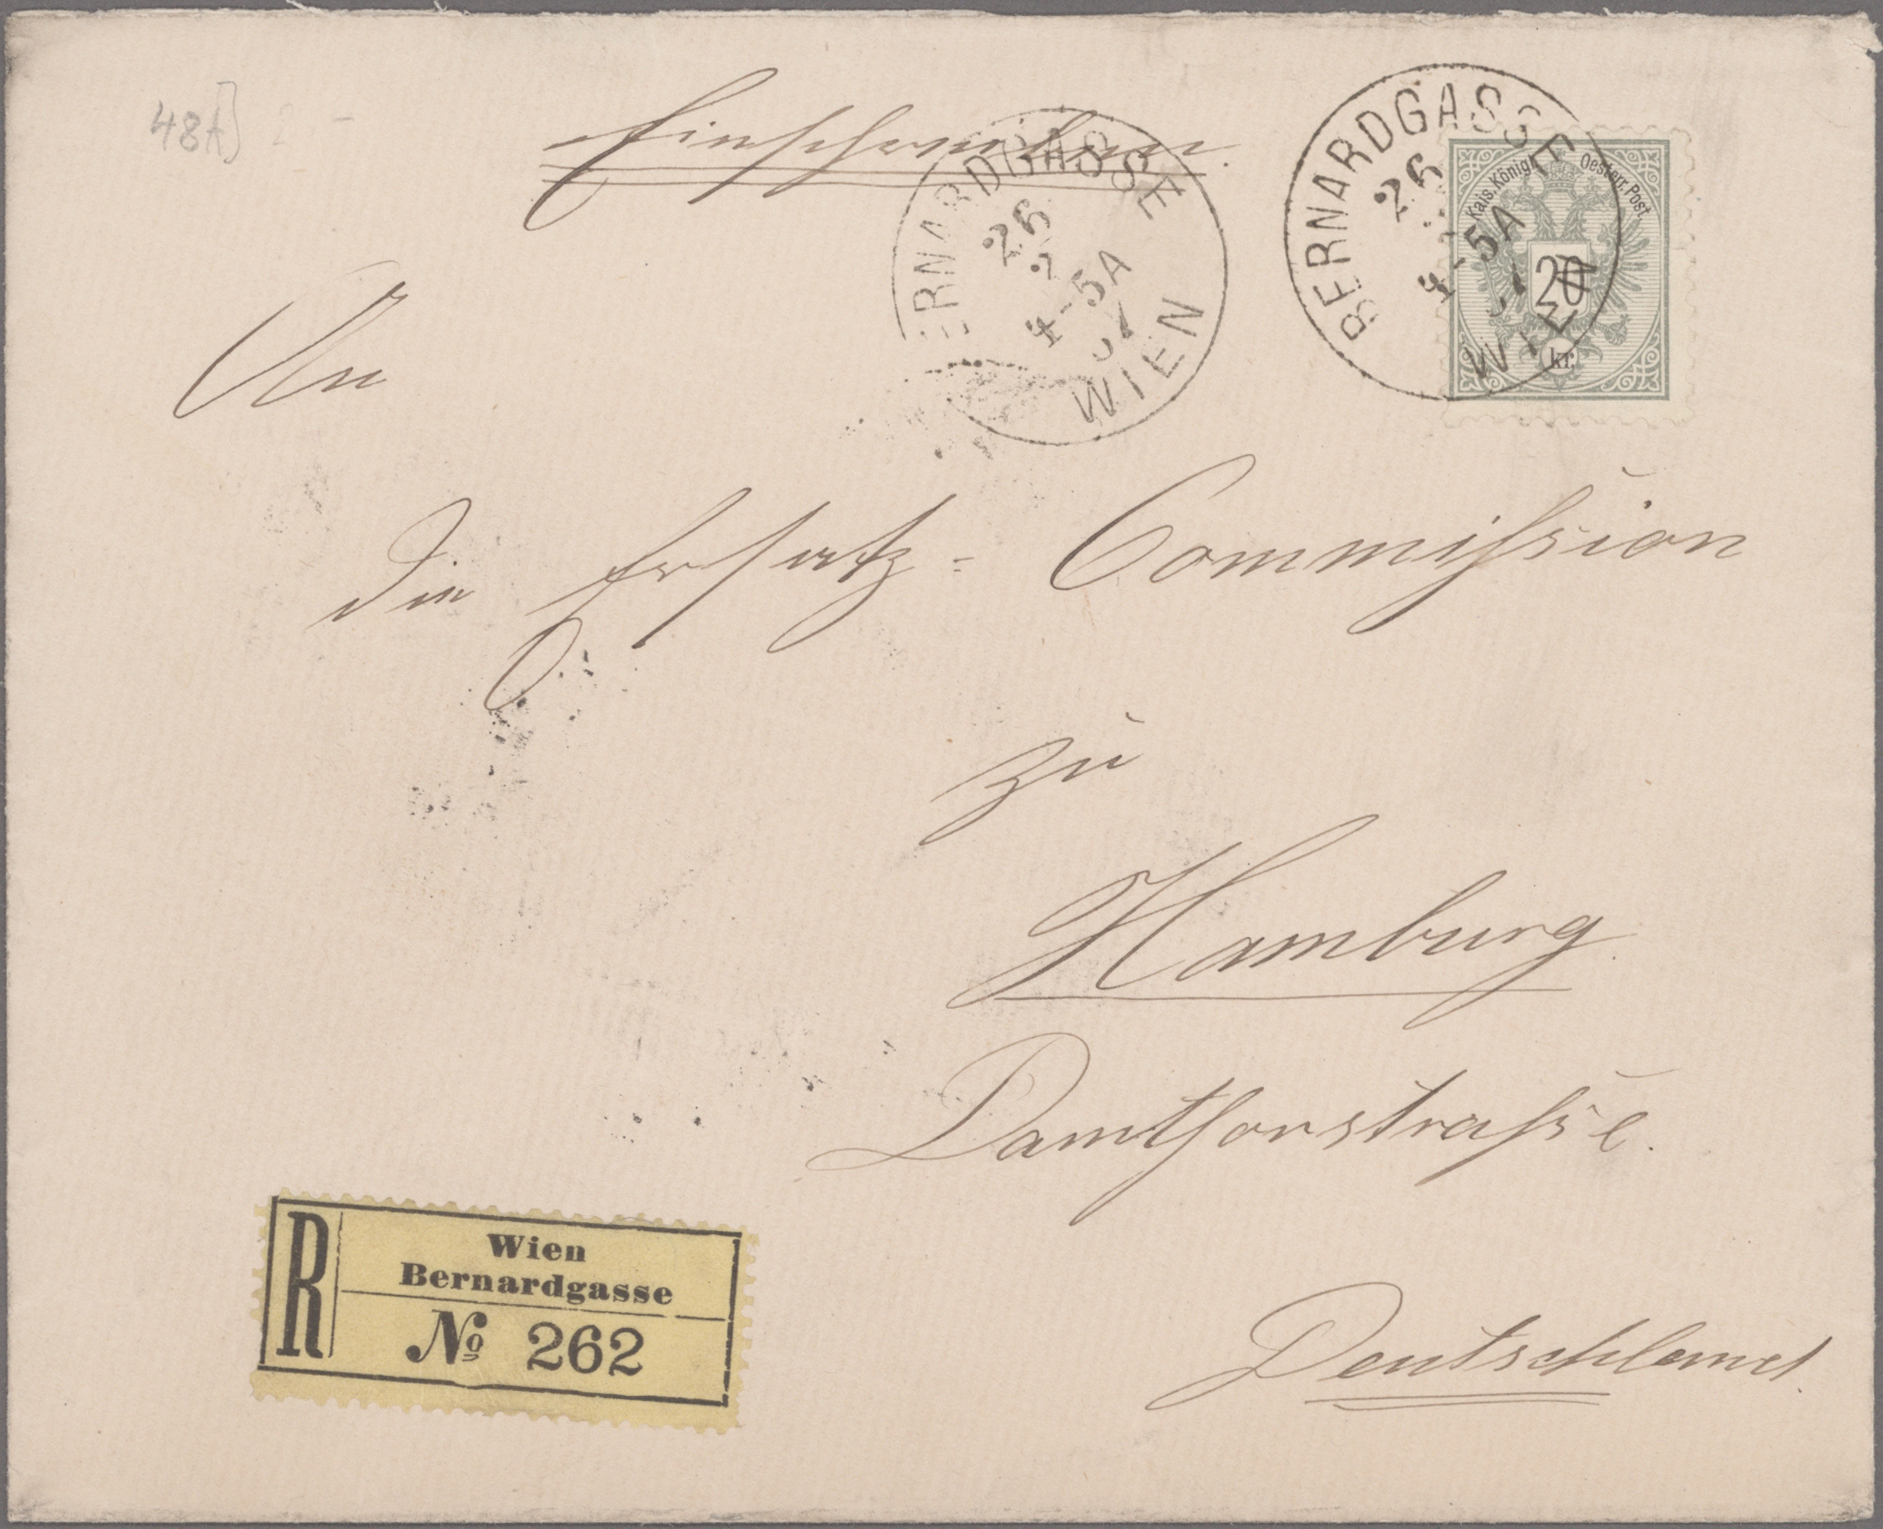 Einschreiben.
BERNARDGASSE
26
4-5A
WIEN
BERNARDGASSE
26
4-5A
WIEN
Kais. Königl. Oesterr. Post.
20
kr.
An
die Ersatz-Commission
zu
Hamburg
Damthorstraße.
Deutschland.
R
Wien
Bernardgasse
№ 262